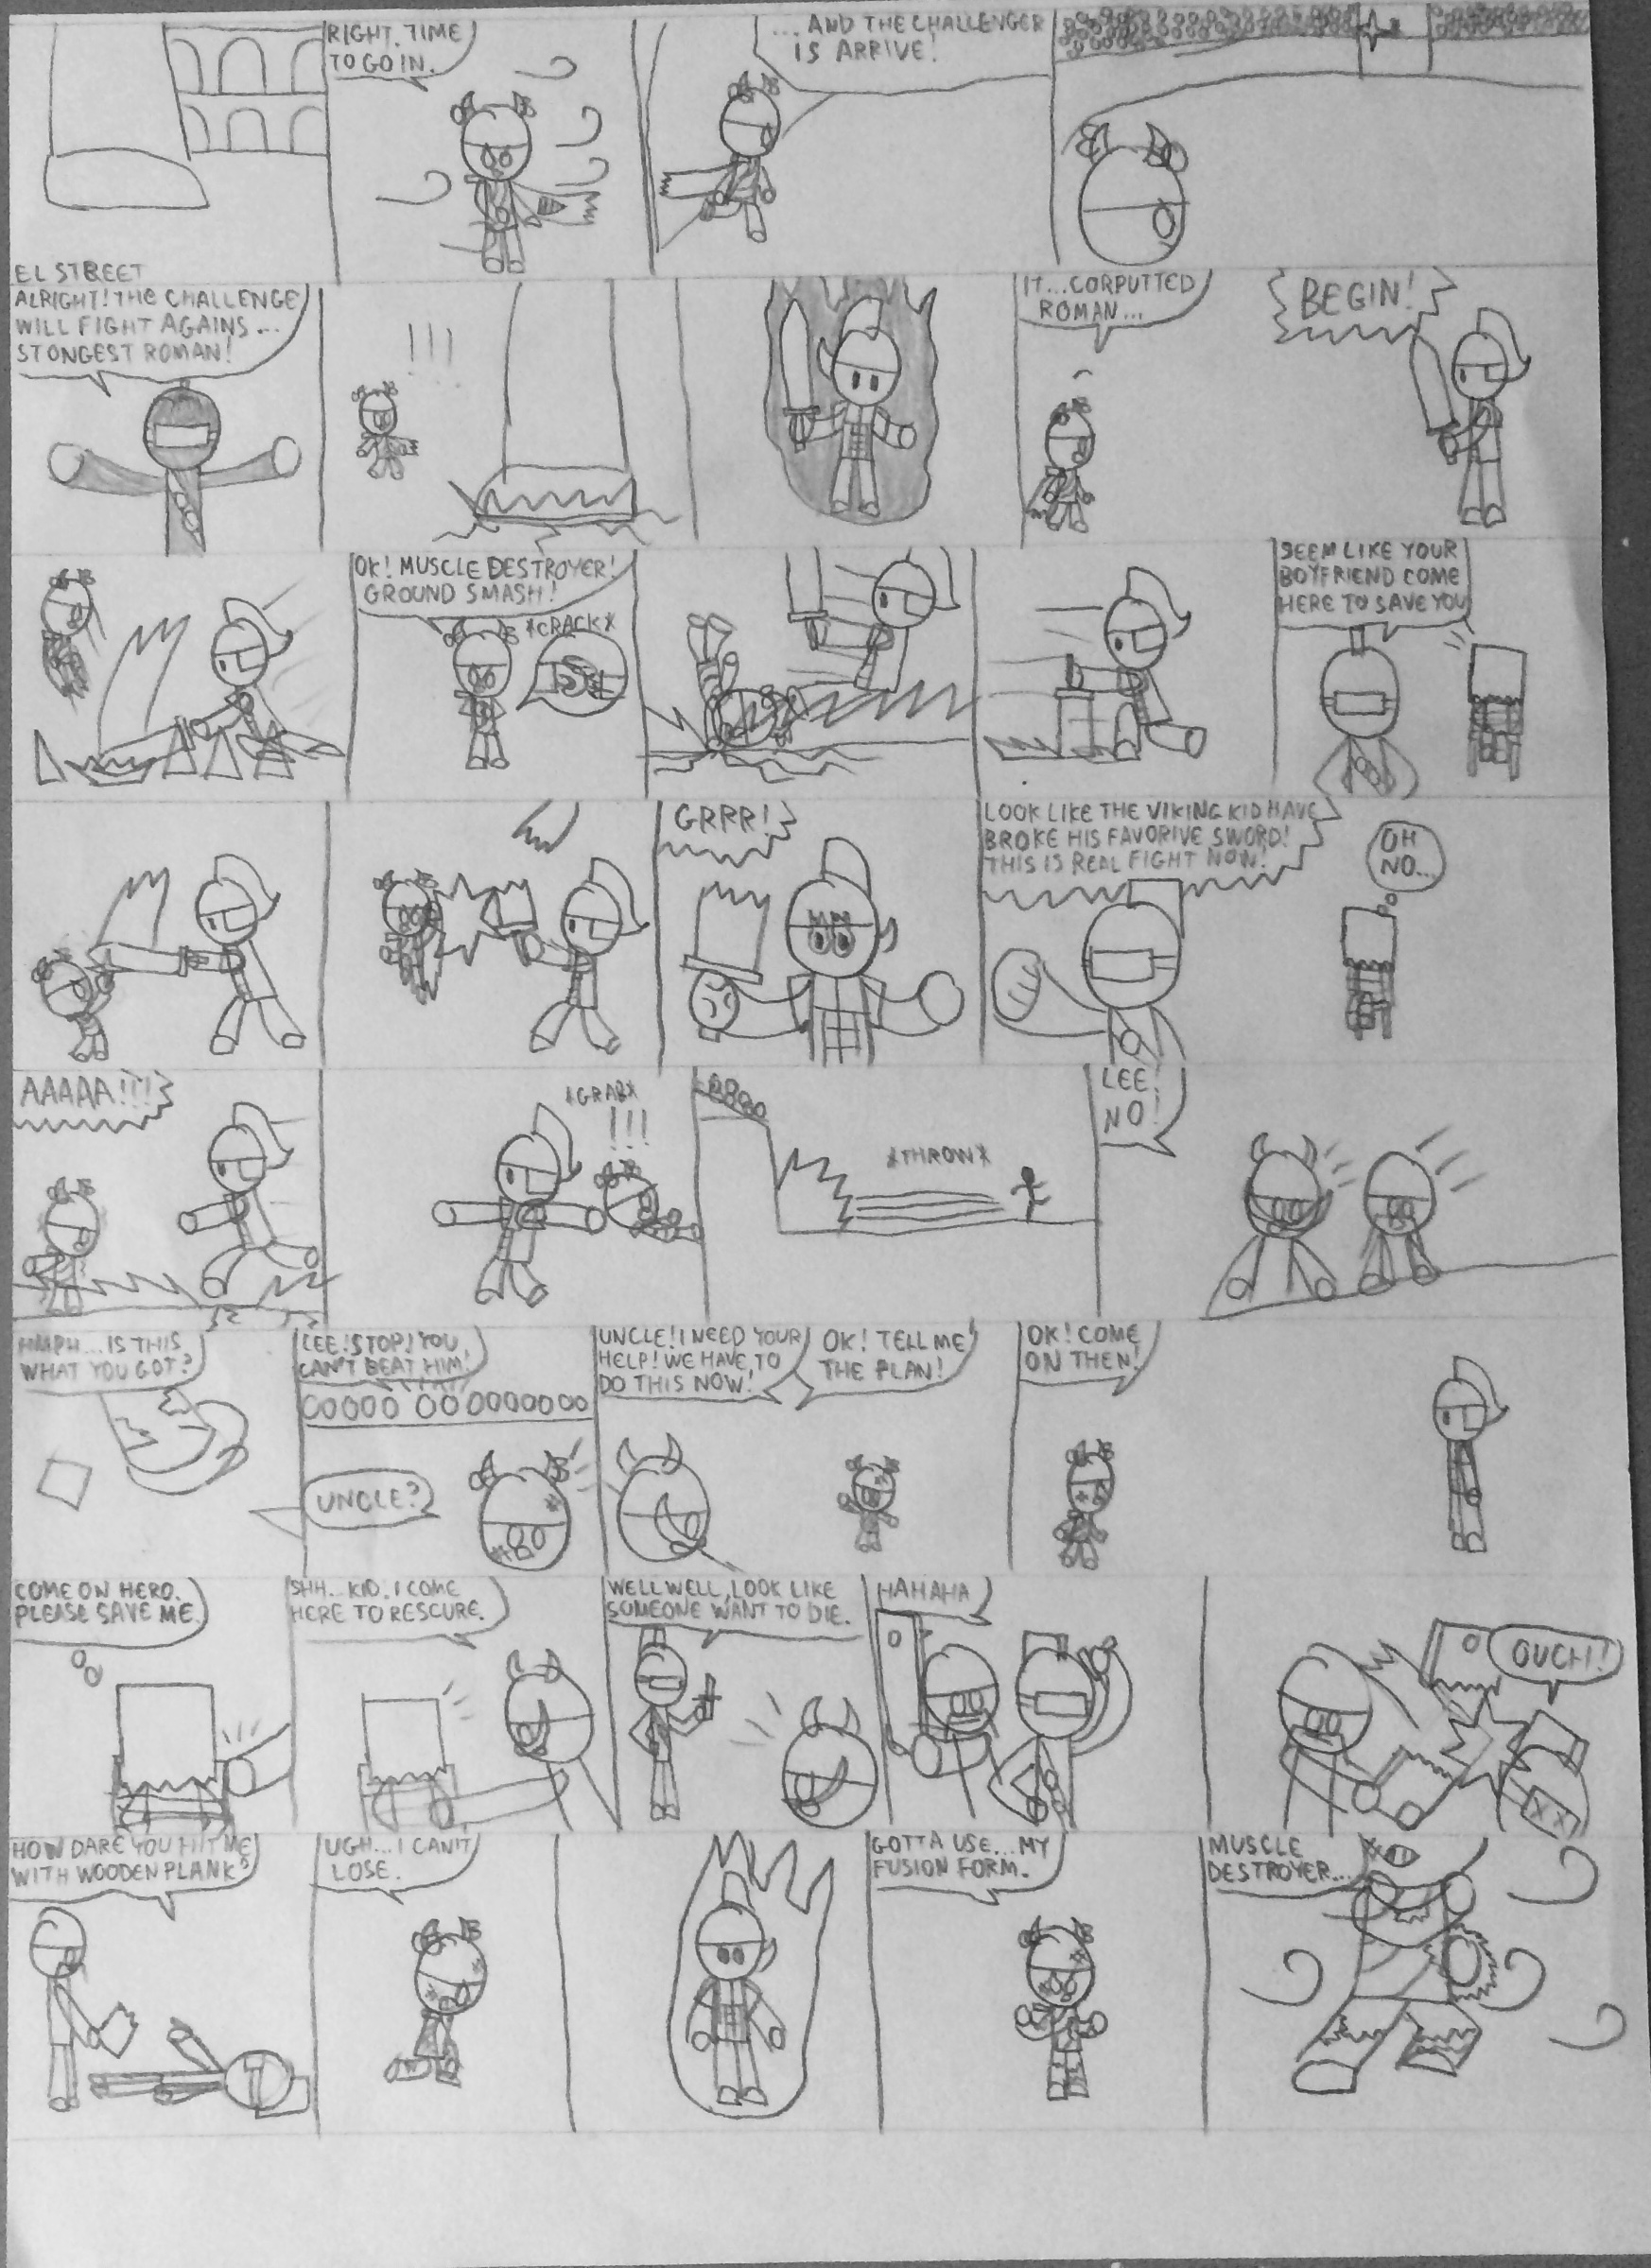 RIGHT. TIME
TO GO IN.
...AND THE CHALLENGER
IS ARRIVE!
EL STREET
ALRIGHT! THE CHALLENGE
WILL FIGHT AGAINS...
STONGEST ROMAN!
!!!
IT...CORPUTTED
ROMAN...
BEGIN!
OK! MUSCLE DESTROYER!
GROUND SMASH!
*CRACK*
SEEM LIKE YOUR
BOYFRIEND COME
HERE TO SAVE YOU
GRRR!
LOOK LIKE THE VIKING KID HAVE
BROKE HIS FAVORIVE SWORD!
THIS IS REAL FIGHT NOW!
OH
NO...
AAAAA!!!
*GRAB*
!!!
*THROW*
LEE!
NO!
HMPH...IS THIS
WHAT YOU GOT?
LEE! STOP! YOU
CAN'T BEAT HIM!
UNCLE?
UNCLE! I NEED YOUR
HELP! WE HAVE TO
DO THIS NOW!
OK! TELL ME
THE PLAN!
OK! COME
ON THEN!
COME ON HERO.
PLEASE SAVE ME.
SHH...KID. I COME
HERE TO RESCURE.
WELL WELL, LOOK LIKE
SOMEONE WANT TO DIE.
HAHAHA
OUCH!
HOW DARE YOU HIT ME
WITH WOODEN PLANK?
UGH...I CAN'T
LOSE.
GOTTA USE...MY
FUSION FORM.
MUSCLE
DESTROYER...